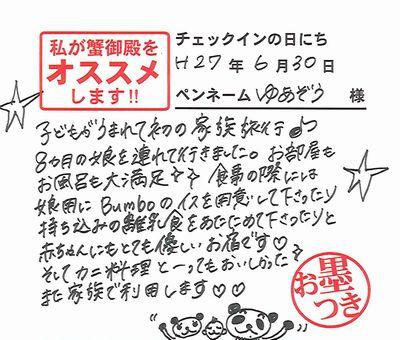 私が蟹御殿を
オススメ
します!!
チェックインの日にち
H27年6月30日
ペンネーム ゆあぞう 様
子どもがうまれて初の家族旅行♪
8ヵ月の娘を連れて行きました。お部屋も
お風呂も大満足 食事の際には
娘用にBumboのイスを用意して下さったり
持ち込みの離乳食をあたためて下さったりと
赤ちゃんにもとても優しいお宿です♡
そしてカニ料理とーってもおいしかった
また家族で利用します♡♡
お墨つき